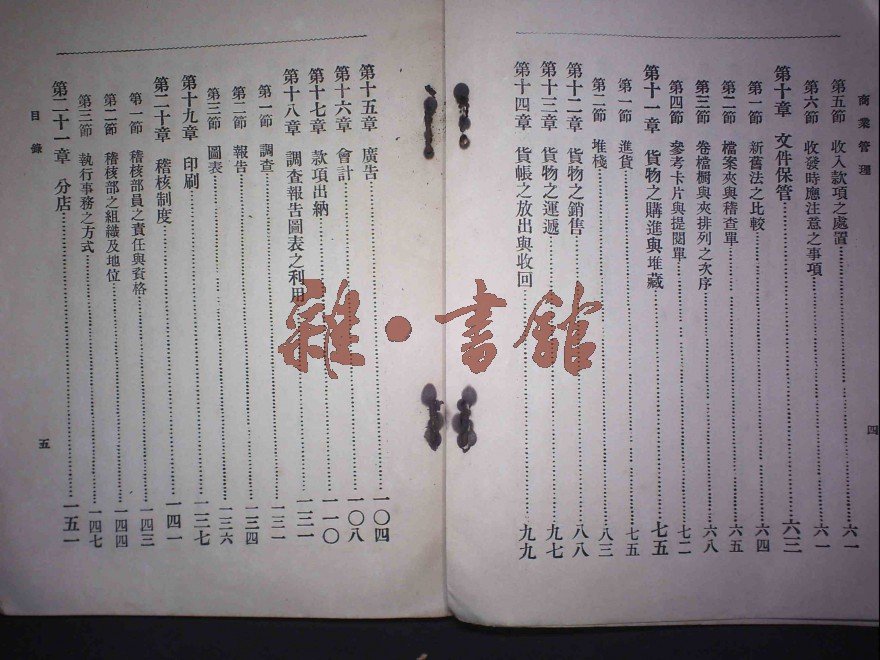 商業管理
第五節 收入款項之處置 六一
第六節 收發時應注意之事項 六一
第十章 文件保管 六三
第一節 新舊法之比較 六四
第二節 檔案夾與稽查單 六五
第三節 卷檔櫥與夾排列之次序 六八
第四節 參考卡片與提閱單 七二
第十一章 貨物之購進與堆藏 七五
第一節 進貨 七五
第二節 堆棧 八三
第十二章 貨物之銷售 八八
第十三章 貨物之運遞 九七
第十四章 貨帳之放出與收回 九九
四
第十五章 廣告 一〇四
第十六章 會計 一〇八
第十七章 款項出納 一一〇
第十八章 調查報告圖表之利用 一三一
第一節 調查 一三一
第二節 報告 一三四
第三節 圖表 一三六
第十九章 印刷 一三七
第二十章 稽核制度 一四一
第一節 稽核部員之責任與資格 一四三
第二節 稽核部之組織及地位 一四四
第三節 執行事務之方式 一四七
第二十一章 分店 一五一
目錄
五
雜·書館